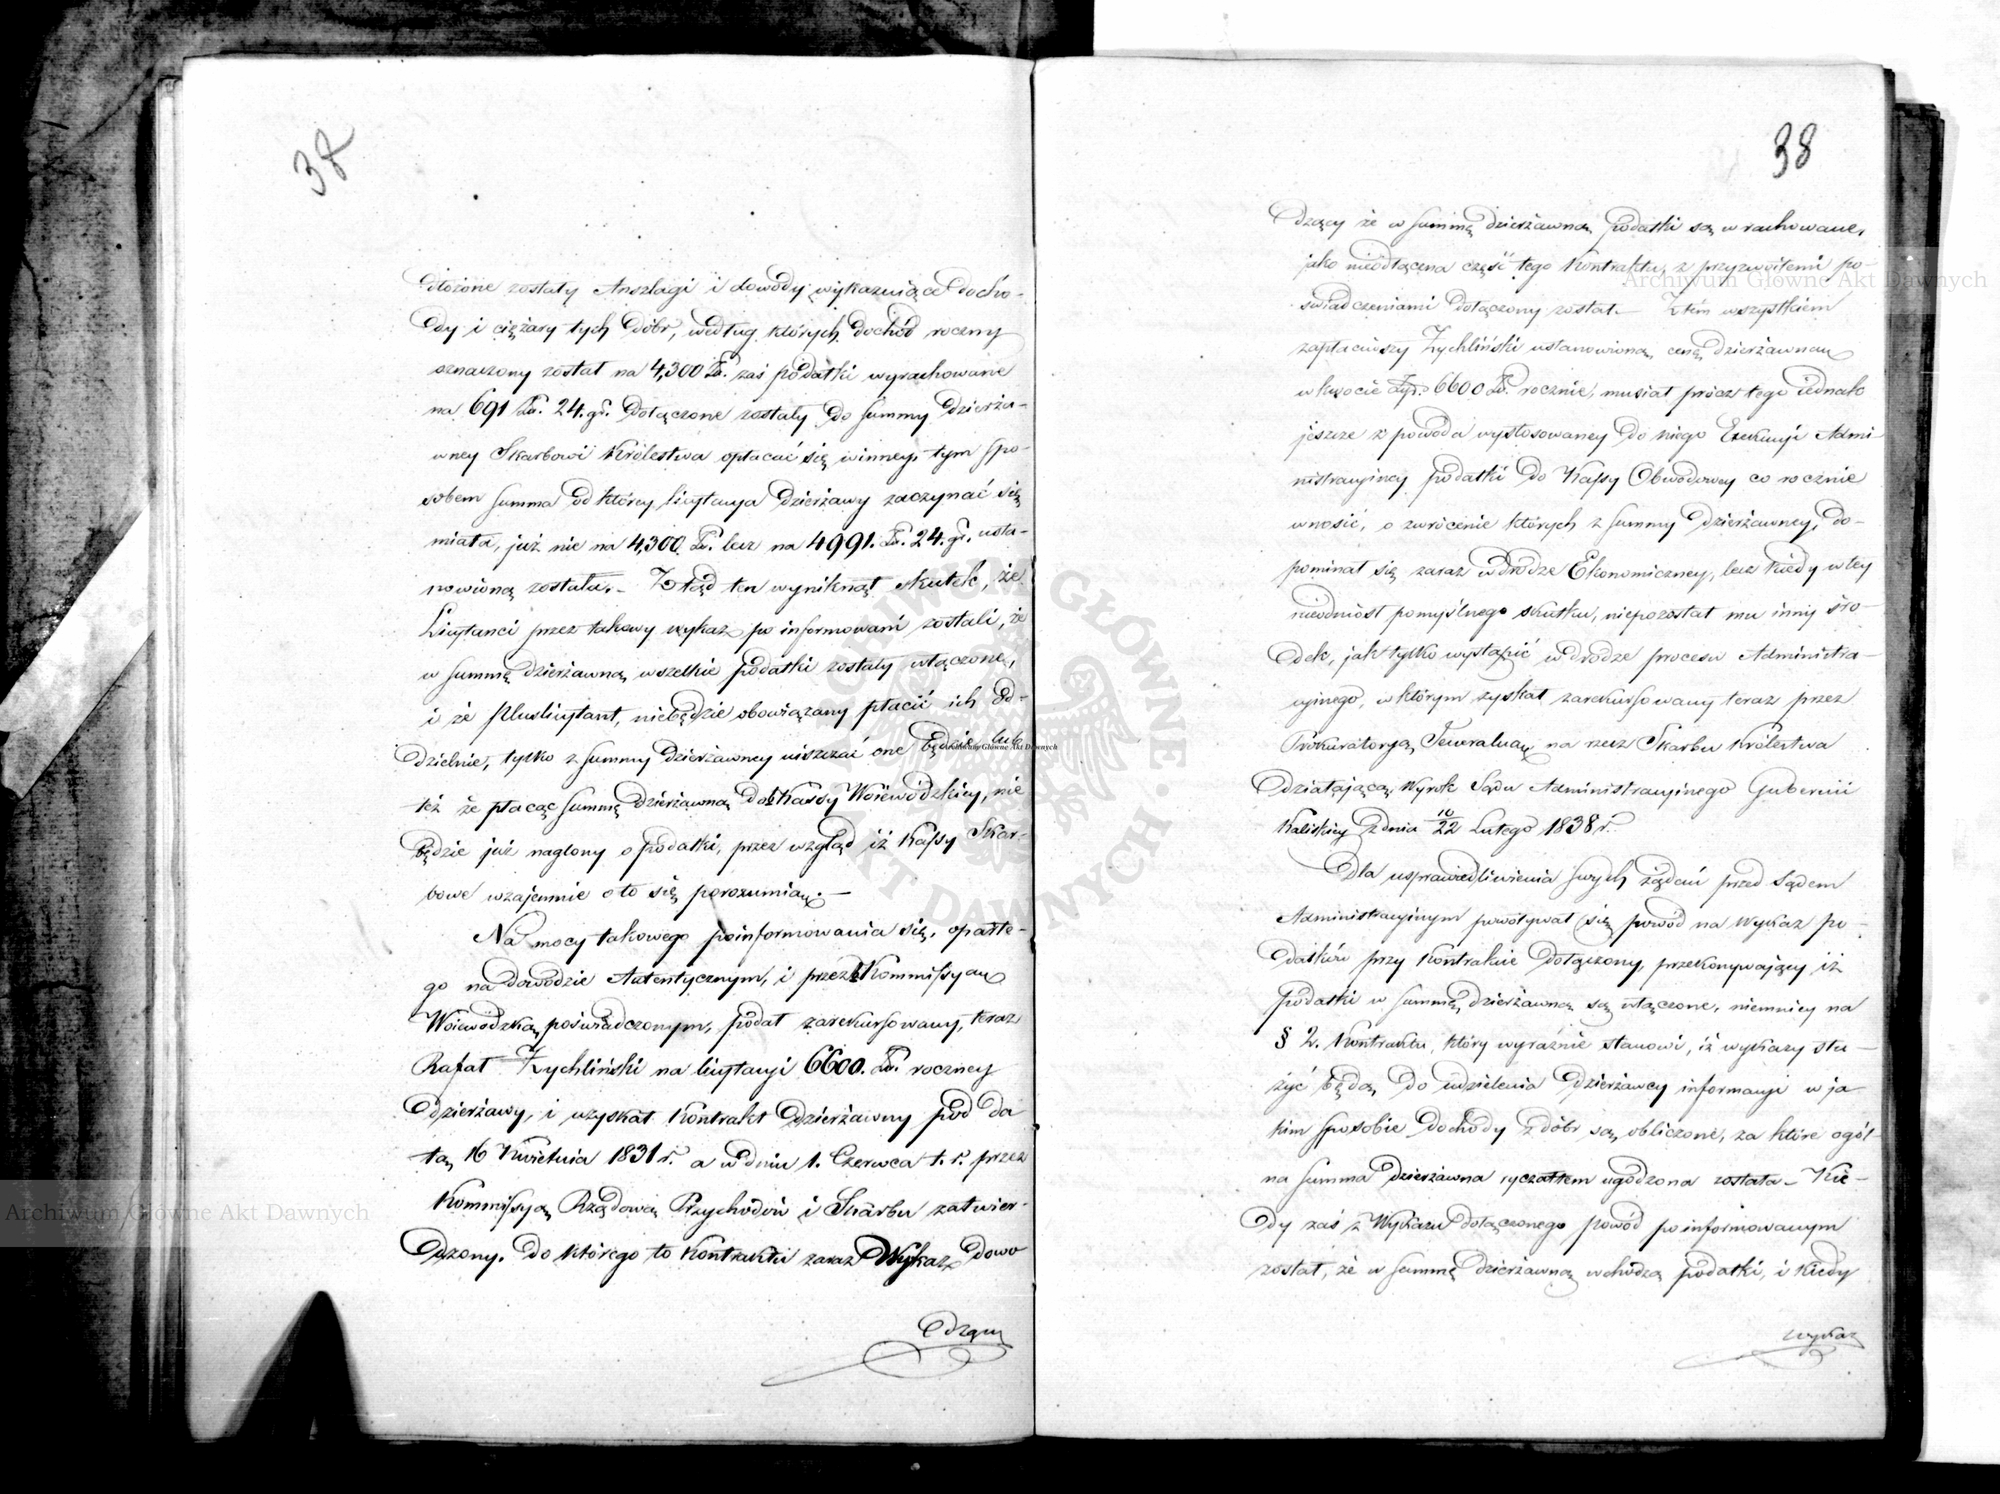 38
dłożone zostały Anszlagi i dowody wykazuiące docho-
dy i ciężary tych dóbr, według których dochód roczny
oznaczony został na 4,300 Zł. zaś podatki wyrachowane
na 691 Zł. 24. gr. dołączone zostały do summy dzierża-
wney Skarbowi Królestwa opłacać się winney, tym spo-
sobem summa od którey licytacya dzierżawy zaczynać się
miała, już nie na 4,300 Zł. lecz na 4991. Zł. 24. gr. usta-
nowioną została. - Ztąd ten wyniknął skutek, że
Licytanci przez takowy wykaz poinformowani zostali, że
w summę dzierżawną wszelkie podatki zostały włączone,
i że Pluslicytant, niebędzie obowiązany płacić ich od-
dzielnie, tylko z summy dzierżawney uiszczać one będzie lub
też że płacąc summę dzierżawną do Kassy Woiewódzkiey, nie
będzie już naglony o podatki, przez wzgląd iż Kassy Skar-
bowe wzajemnie o to się porozumią. -
Na mocy takowego poinformowania się, oparte-
go na dowodzie Autentycznym, i przez Kommissyą
Woiewódzką poświadczonym, podał zarekursowany teraz
Rafał Zychliński na licytacyi 6600. Zł. roczney
dzierżawy, i uzyskał Kontrakt dzierżawny pod da
tą 16 Kwietnia 1831 r. a w dniu 1. Czerwca t. r. przez
Kommissyą Rządową Przychodów i Skarbu zatwier-
dzony. do którego to Kontraktu zaraz Wykaz dowo
dzący
38
dzący że w summę dzierżawną podatki są wrachowane,
jako nieodłączna część tego Kontraktu, z przyzwoitemi po-
świadczeniami dołączony został. - Z tém wszystkiem
zapłaciwszy Zychliński ustanowioną cenę dzierżawną
w kwocie Złp. 6600 Zł. rocznie, musiał prócz tego iednak
jeszcze z powodu wystosowaney do niego Exekucyi Admi-
nistracyiney podatki do Kassy Obwodowey co rocznie
wnosić, o zwrócenie których z summy dzierżawney, do-
pominał się zaraz w drodze Ekonomiczney, lecz kiedy w tey
nieodniósł pomyślnego skutku, niepozostał mu inny śro-
dek, jak tylko wystąpić w drodze procesu Administra-
cyinego, w którym zyskał zarekursowany teraz przez
Prokuratoryą Jeneralną na rzecz Skarbu Królestwa
działającą, Wyrok Sądu Administracyinego Gubernii
Kaliskiey z dnia 10/22 Lutego 1838 r.
Dla usprawiedliwienia swych żądań przed Sądem
Administracyinym powoływał się powód na Wykaz po-
datków przy Kontrakcie dołączony, przekonywający iż
podatki w summę dzierżawną są włączone, niemniey na
§ 2. Kontraktu, który wyraźnie stanowi, iż wykazy słu-
żyć będą do udzielenia dzierżawcy informacyi w ja
kim sposobie dochody z dóbr są obliczone, za które ogól-
na summa dzierżawna ryczałtem ugodzona została - Kie-
dy zaś z Wykazu dołączonego powód poinformowanym
został, że w summę dzierżawną wchodzą podatki, i kiedy
wykaz
Archiwum Główne Akt Dawnych
Archiwum Główne Akt Dawnych
Archiwum Główne Akt Dawnych